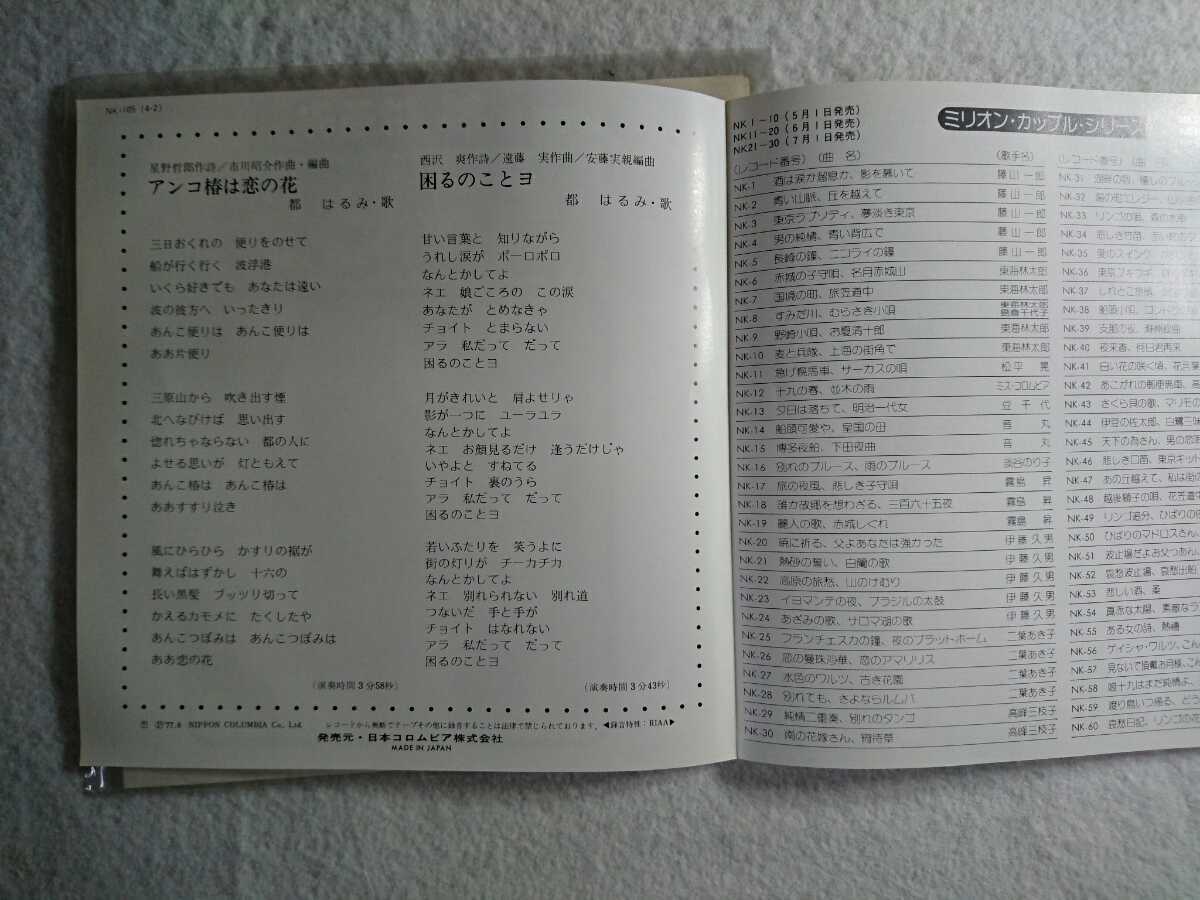 NK-105 (4-2)
星野哲郎作詩/市川昭介作曲・編曲
アンコ椿は恋の花
都 はるみ・歌
三日おくれの 便りをのせて
船が行く行く 波浮港
いくら好きでも あなたは遠い
波の彼方へ いったきり
あんこ便りは あんこ便りは
ああ片便り
三原山から 吹き出す煙
北へなびけば 思い出す
惚れちゃならない 都の人に
よせる思いが 灯ともえて
あんこ椿は あんこ椿は
ああすすり泣き
風にひらひら かすりの裾が
舞えばはずかし 十六の
長い黒髪 プッツリ切って
かえるカモメに たくしたや
あんこつぼみは あんこつぼみは
ああ恋の花
(演奏時間3分58秒)
西沢 爽作詩/遠藤 実作曲/安藤実親編曲
困るのことヨ
都 はるみ・歌
甘い言葉と 知りながら
うれし涙が ポーロポロ
なんとかしてよ
ネエ 娘ごころの この涙
あなたが とめなきゃ
チョイト とまらない
アラ 私だって だって
困るのことヨ
月がきれいと 肩よせりゃ
影が一つに ユーラユラ
なんとかしてよ
ネエ お顔見るだけ 逢うだけじゃ
いやよと すねてる
チョイト 裏のうら
アラ 私だって だって
困るのことヨ
若いふたりを 笑うよに
街の灯りが チーカチカ
なんとかしてよ
ネエ 別れられない 別れ道
つないだ 手と手が
チョイト はなれない
アラ 私だって だって
困るのことヨ
(演奏時間3分43秒)
77.8 NIPPON COLUMBIA Co., Ltd. レコードから無断でテープその他に録音することは法律で禁じられております。◀録音特性:RIAA▶
発売元・日本コロムビア株式会社
MADE IN JAPAN
NK1-10(5月1日発売)
NK11-20(6月1日発売)
NK21-30(7月1日発売)
ミリオン・カップル・シリーズ
(レコード番号)(曲 名) (歌手名)
NK-1 酒は涙か溜息か、影を慕いて 藤山一郎
NK-2 青い山脈、丘を越えて 藤山一郎
NK-3 東京ラプソディ、夢淡き東京 藤山一郎
NK-4 男の純情、青い背広で 藤山一郎
NK-5 長崎の鐘、ニコライの鐘 藤山一郎
NK-6 赤城の子守唄、名月赤城山 東海林太郎
NK-7 国境の町、旅笠道中 東海林太郎
NK-8 すみだ川、むらさき小唄 東海林太郎 島倉千代子
NK-9 野崎小唄、お夏清十郎 東海林太郎
NK-10 麦と兵隊、上海の街角で 東海林太郎
NK-11 急げ幌馬車、サーカスの唄 松平 晃
NK-12 十九の春、並木の雨 ミス・コロムビア
NK-13 夕日は落ちて、明治一代女 豆千代
NK-14 船頭可愛や、皇国の母 音丸
NK-15 博多夜船、下田夜曲 音丸
NK-16 別れのブルース、雨のブルース 淡谷のり子
NK-17 旅の夜風、悲しき子守唄 霧島 昇
NK-18 誰か故郷を想わざる、三百六十五夜 霧島 昇
NK-19 麗人の歌、赤城しぐれ 霧島 昇
NK-20 暁に祈る、父よあなたは強かった 伊藤久男
NK-21 熱砂の誓い、白蘭の歌 伊藤久男
NK-22 高原の旅愁、山のけむり 伊藤久男
NK-23 イヨマンテの夜、ブラジルの太鼓 伊藤久男
NK-24 あざみの歌、サロマ湖の歌 伊藤久男
NK-25 フランチェスカの鐘、夜のプラットホーム 二葉あき子
NK-26 恋の曼珠沙華、恋のアマリリス 二葉あき子
NK-27 水色のワルツ、古き花園 二葉あき子
NK-28 別れても、さよならルムバ 二葉あき子
NK-29 純情二重奏、別れのタンゴ 高峰三枝子
NK-30 南の花嫁さん、宵待草 高峰三枝子
(レコード番号)(曲
NK-31
NK-32
NK-33 リンゴの唄、
NK-34 悲しき竹笛、
NK-35
NK-36 東京ブギウギ、
NK-37
NK-38 船頭小唄、
NK-39 支那の夜、蘇州夜曲
NK-40 夜来香、何日君再来
NK-41 白い花の咲く頃、
NK-42 あこがれの郵便馬車、
NK-43 さくら貝の歌、マリモの
NK-44 伊豆の佐太郎、白鷺三味
NK-45 天下の為さん、男の
NK-46 悲しき口笛、東京キッド
NK-47 あの丘越えて、私は街の
NK-48 越後獅子の唄、
NK-49 リンゴ追分、ひばりの
NK-50 ひばりのマドロスさん、
NK-51 波止場だよお父つあん、
NK-52 哀愁波止場、哀愁出船
NK-53 悲しい酒、
NK-54 真赤な太陽、
NK-55 ある女の詩、
NK-56 ゲイシャ・ワルツ、
NK-57 見ないで頂戴お月様、
NK-58 娘十九はまだ純情よ、
NK-59 渡り鳥いつ帰る、
NK-60 哀愁日記、リンゴの